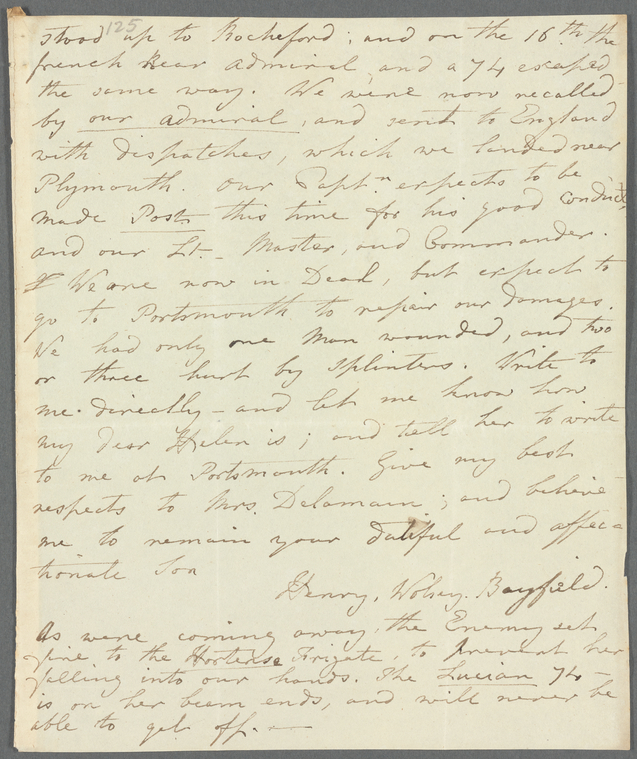 125
stood up to Rocheford; and on the 16th. the
french Rear Admiral and a 74 escaped
the same way. We were now recalled
by our admiral, and sent to England
with dispatches, which we landed near
Plymouth. Our Captn. expects to be
made Post this time for his good conduct,
and our Lt. Master, and Commander.
We are now in Deal, but expect to
go to Portsmouth to repair our damages.
We had only one Man wounded, and two
or three hurt by splinters. Write to
me directly – and let me know how
my dear Helen is; and tell her to write
to me at Portsmouth. Give my best
respects to Mrs. Delamain; and believe
me to remain your dutiful and affec-
tionate Son
Henry. Wolsey. Bayfield.
As were coming away, the Enemy set
fire to the Hortense Frigate, to prevent her
falling into our hands. The Lucian 74 –
is on her beam ends, and will never be
able to get off. —